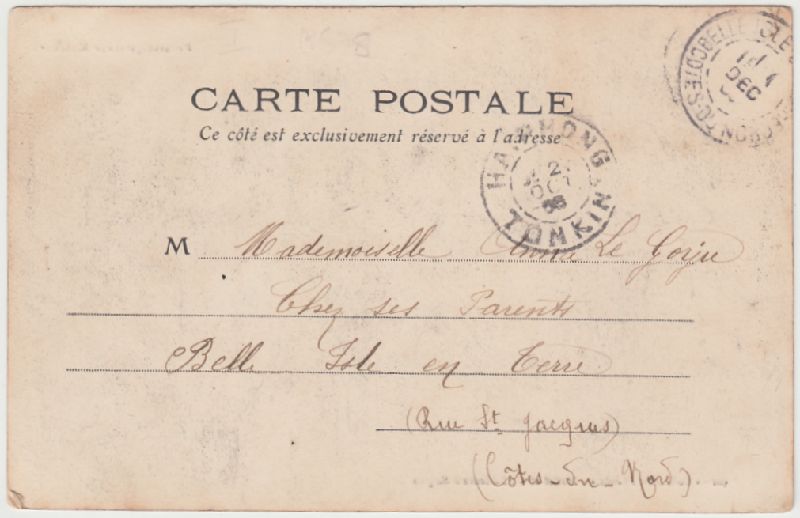 CARTE POSTALE
Ce côté est exclusivement réservé à l'adresse
HAIPHONG
2
OCT
TONKIN
BELLE-ISLE
DEC
COTES-DU-NORD
M Mademoiselle Anna Le Gorju
Chez ses Parents
Belle Isle en Terre
(Rue St Jacques)
(Côtes-du-Nord)